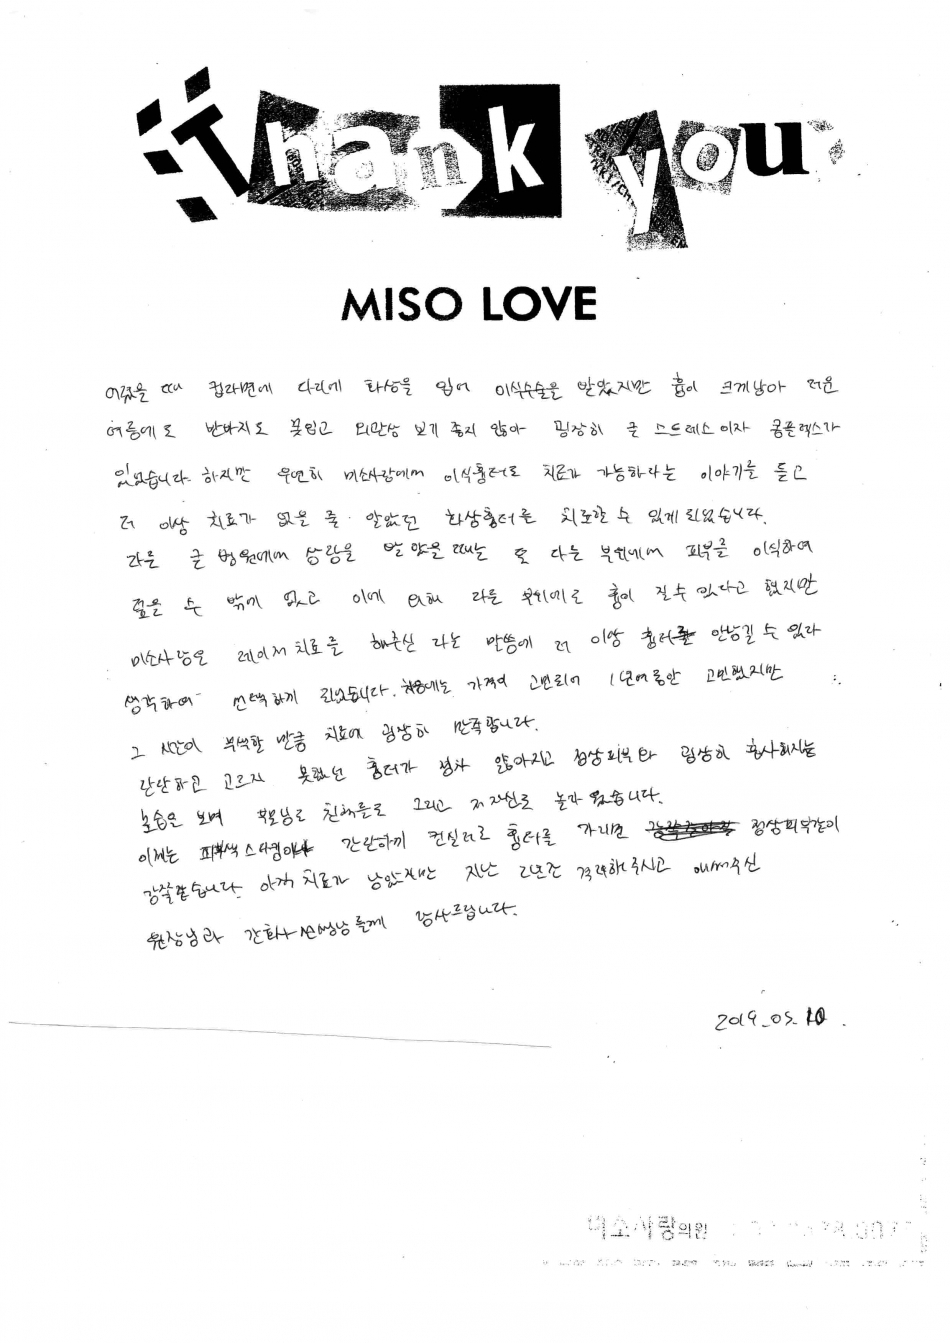 Thank you
MISO LOVE
어렸을 때 컵라면에 다리에 화상을 입어 이식수술을 받았지만 흉이 크게남아 더운
여름에도 반바지도 못입고 외관상 보기 좋지 않아 굉장히 큰 스트레스이자 콤플렉스가
있었습니다. 하지만 우연히 미소사랑에서 이식흉터도 치료가 가능하다는 이야기를 듣고
더 이상 치료가 없을 줄 알았던 화상흉터를 치료할 수 있게 되었습니다.
다른 큰 병원에서 상담을 받았을 때는 또 다른 부위에서 피부를 이식하여
수 밖에 없고 이에 의해 다른 부위에도 흉이 질수 있다고 했지만
미소사랑은 레이저치료를 해주신 다는 말씀에 더 이상 흉터를 안남길 수 있다
생각하여 선택하게 되었습니다. 처음에는 가격이 고민되어 1년여동안 고민했지만
그 시간이 무색할 만큼 치료에 굉장히 만족합니다.
단단하고 고르지 못했던 흉터가 점차 얇아지고 정상피부와 굉장히 흡사해지는
모습을 보며 부모님도 친구들도 그리고 저 자신도 놀라웠습니다.
이제는 피부색 스타킹이나 간단하게 컨실러로 흉터를 가리면 정상피부같이
감쪽같습니다. 아직 치료가 남았지만 지난 2년간 격려해주시고 애써주신
원장님과 간호사선생님들께 감사드립니다.
2019.05.10.
미소사랑의원